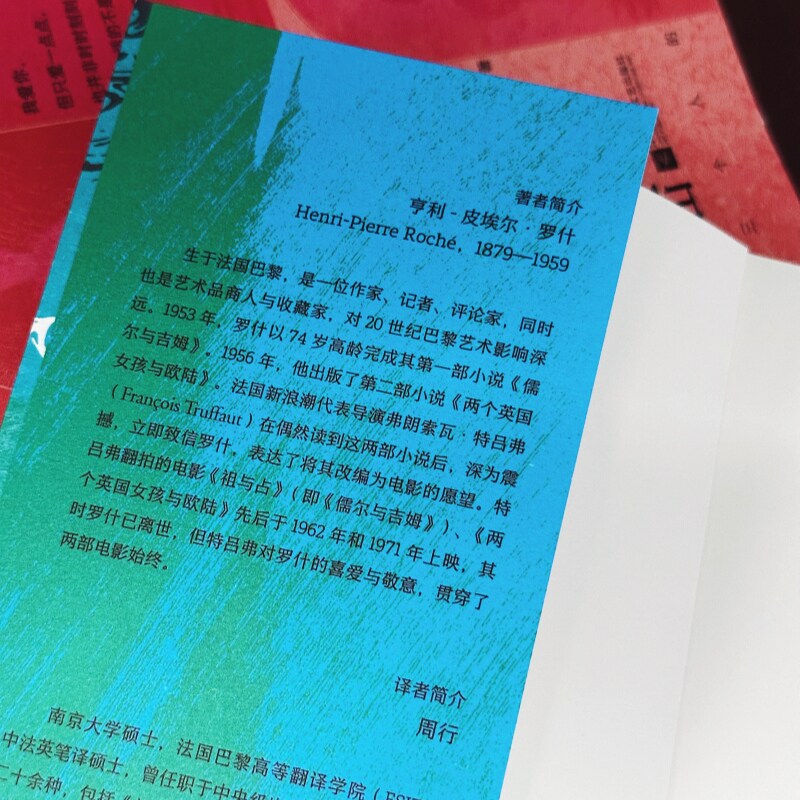 我爱你，
但只爱一点点，
著者简介
亨利 - 皮埃尔 · 罗什
Henri-Pierre Roché，1879—1959
生于法国巴黎，是一位作家、记者、评论家，同时
也是艺术品商人与收藏家，对 20 世纪巴黎艺术影响深
远。1953 年，罗什以 74 岁高龄完成其第一部小说《儒
尔与吉姆》。1956 年，他出版了第二部小说《两个英国
女孩与欧陆》。法国新浪潮代表导演弗朗索瓦 · 特吕弗
（François Truffaut）在偶然读到这两部小说后，深为震
撼，立即致信罗什，表达了将其改编为电影的愿望。特
吕弗翻拍的电影《祖与占》（即《儒尔与吉姆》）、《两
个英国女孩与欧陆》先后于 1962 年和 1971 年上映，其
时罗什已离世，但特吕弗对罗什的喜爱与敬意，贯穿了
两部电影始终。
译者简介
周行
南京大学硕士，法国巴黎高等翻译学院（ESIT
中法英笔译硕士，曾任职于中央
二十余种，包括